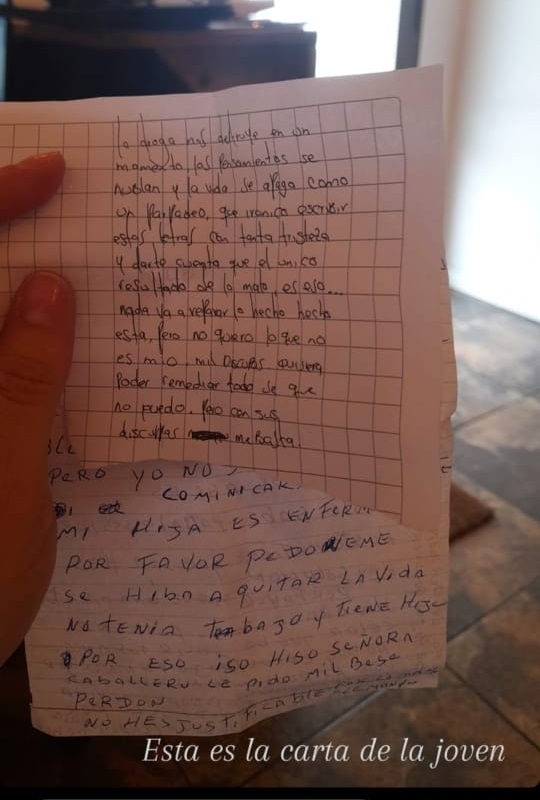 la droga nos destruye en un
momento, las Pensamientos se
nublan y la vida se apaga como
un Parpadeo, que ironico escribir
estas letras con tanta tristeza
y darte cuenta que el unico
resultado de lo malo, es eso...
nada va a reparar lo hecho hecho
esta, Pero no quero lo que no
es mio, mil Disculpas quisiera
Poder remediar todo se que
no puedo. Pero con sus
disculpas me Basta
PERO YO NO
COMINICAR
MI HIJA ES ENFER
POR FAVOR PEDONEME
SE HIBA A QUITAR LA VIDA
NO TENIA TRABAJO Y TIENE HIJO
POR ESO ISO HISO SEÑORA
CABALLERO LE PIDO MIL BESE
PERDON
NO HES JUSTIFICABLE
Esta es la carta de la joven